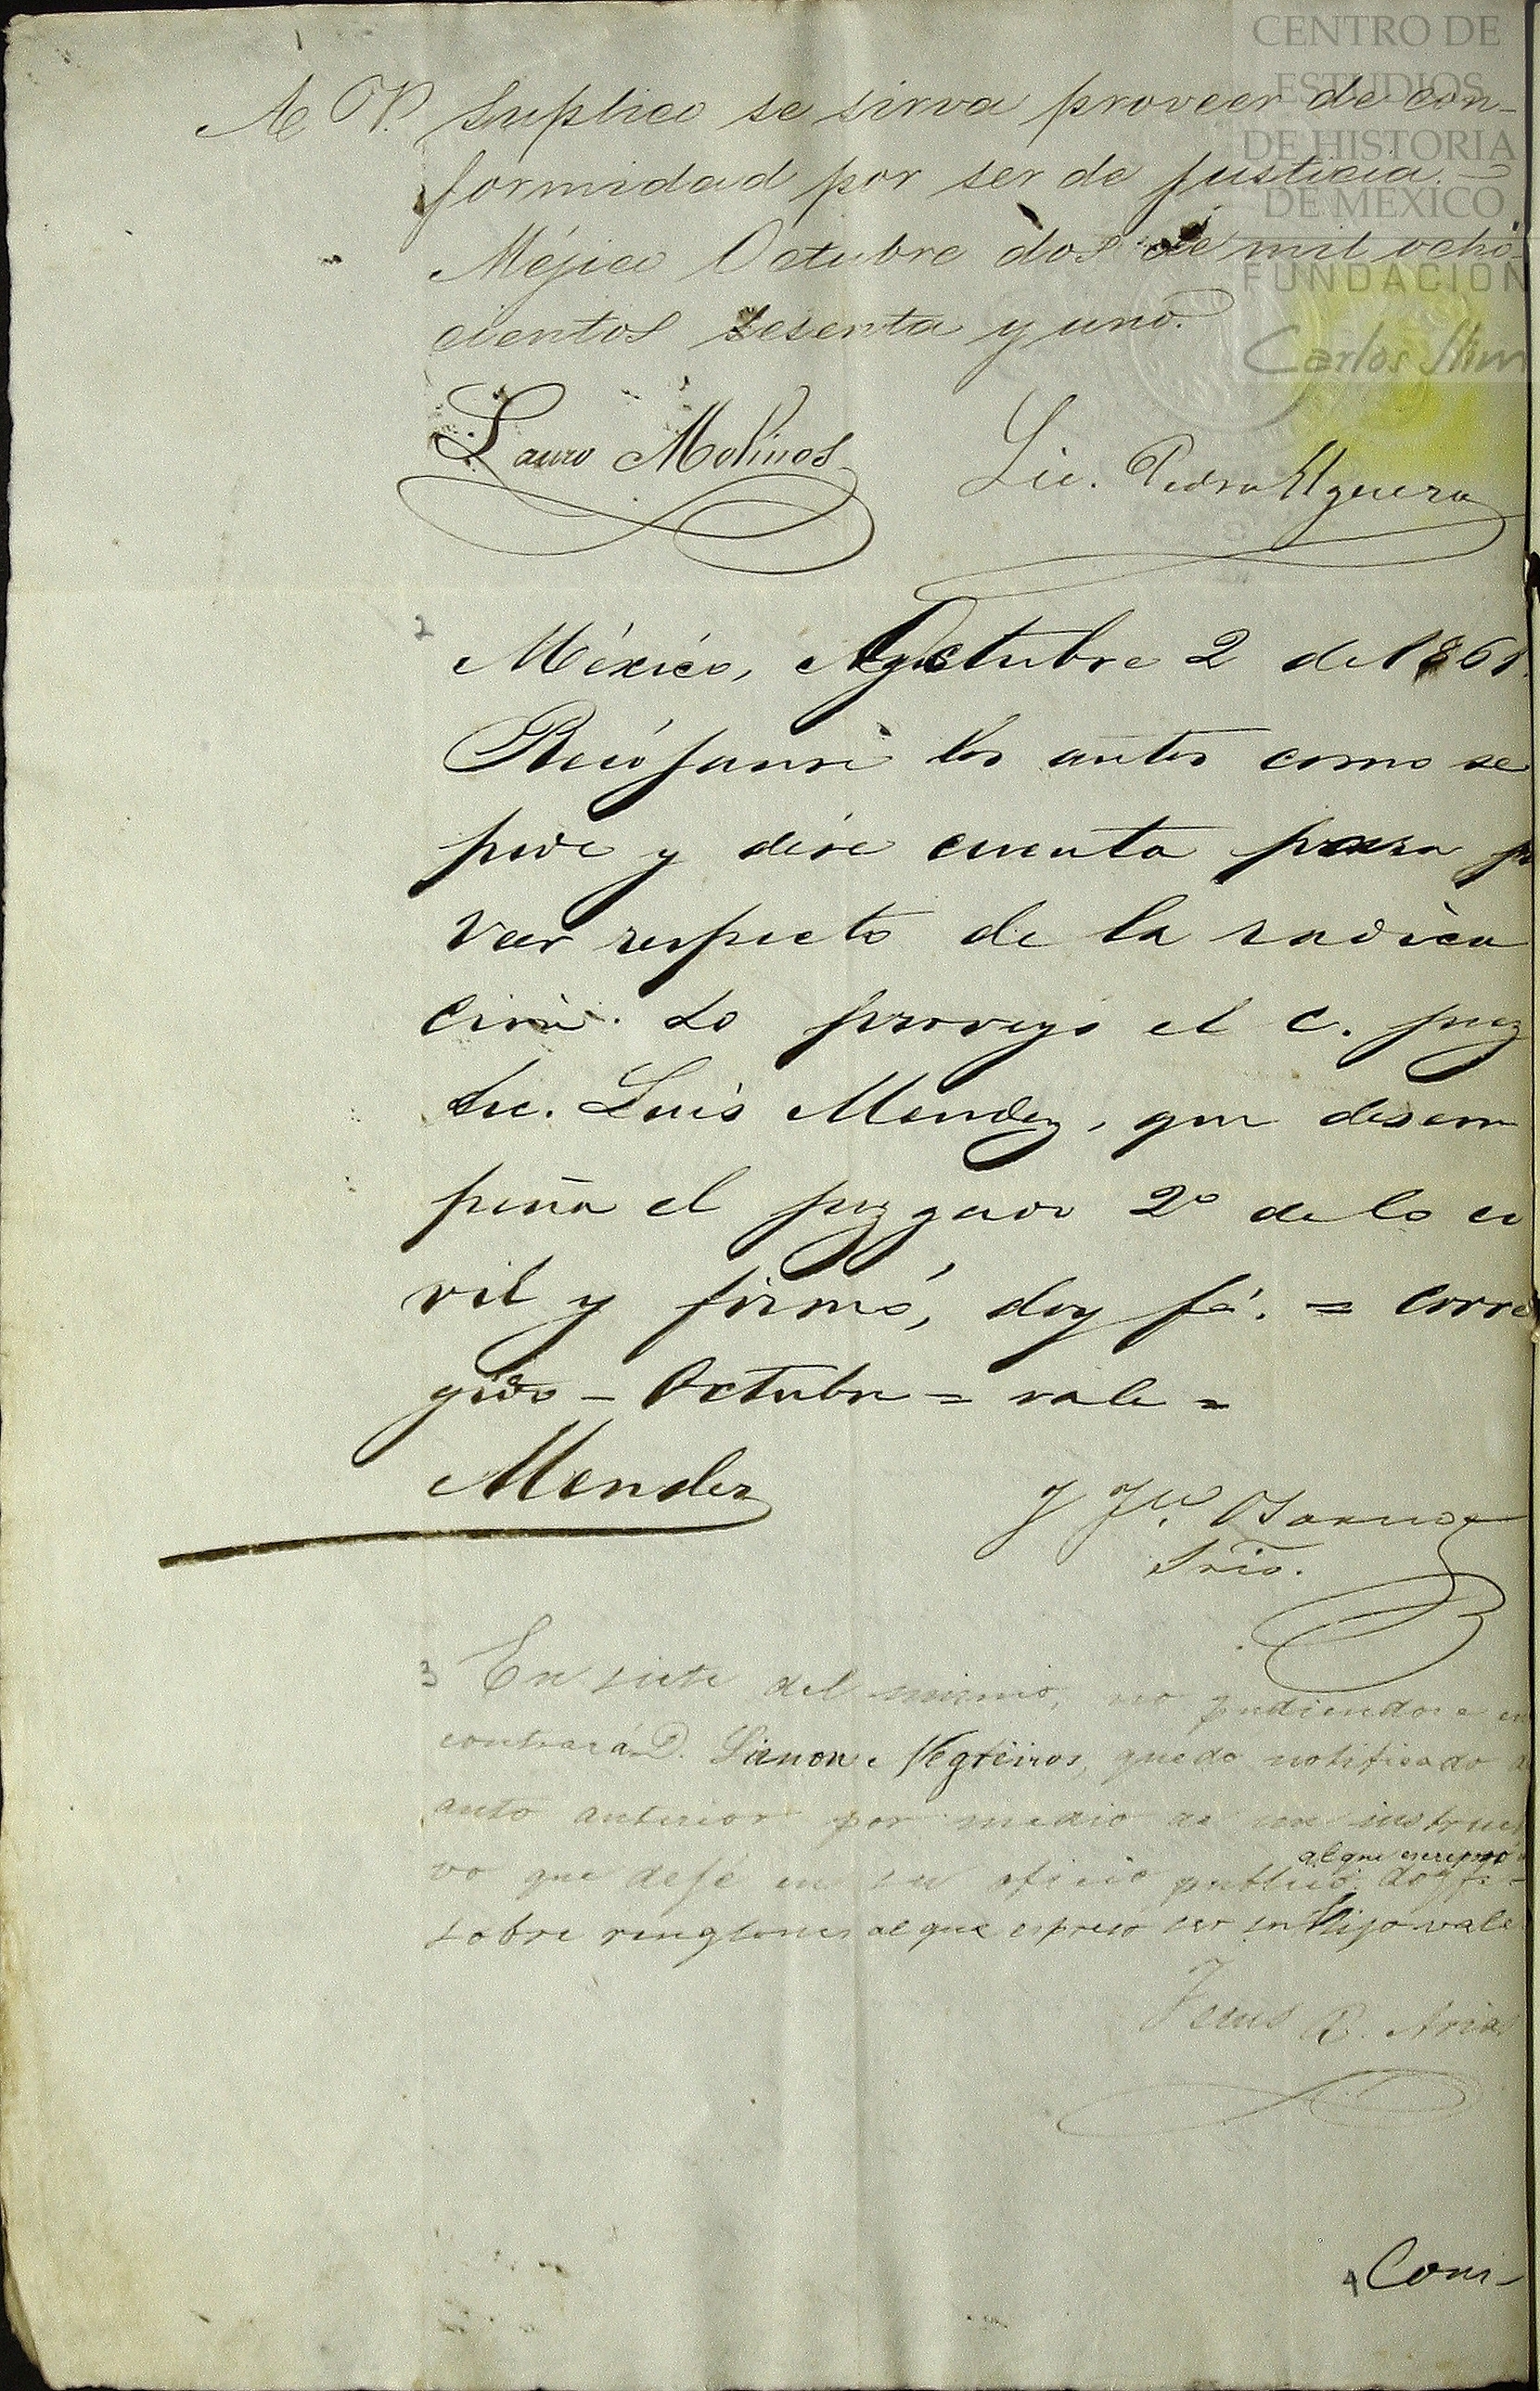 CENTRO DE
ESTUDIOS
DE HISTORIA
DE MEXICO
FUNDACION
Carlos Slim
A V. Suplico se sirva proveer de con-
formidad por ser de justicia.
Méjico Octubre dos de mil ocho-
cientos sesenta y uno.
Lauro Molinos
Lic. Pedro Elguera
2
México, Octubre 2 de 1861.
los autos como se
pide y dése cuenta para pro
veer respecto de la radica
ción. Lo proveyó el C. juez
Lic. Luis Mendez, que desem
peña el juzgado 2º de lo ci
vil y firmó, doy fé. = Corre
gido - Octubre = vale =
Mendez
Srio.
3 En siete del mismo, no pudiendose en
contrar á D. Ramon Negreiros, quedo notificado del
auto anterior por medio de un instructi
al que espresó
vo que dejé en su oficio publico. doy fé -
sobre renglones al que espreso ser su hijo vale
Jesus R. Arias
4 Coni-